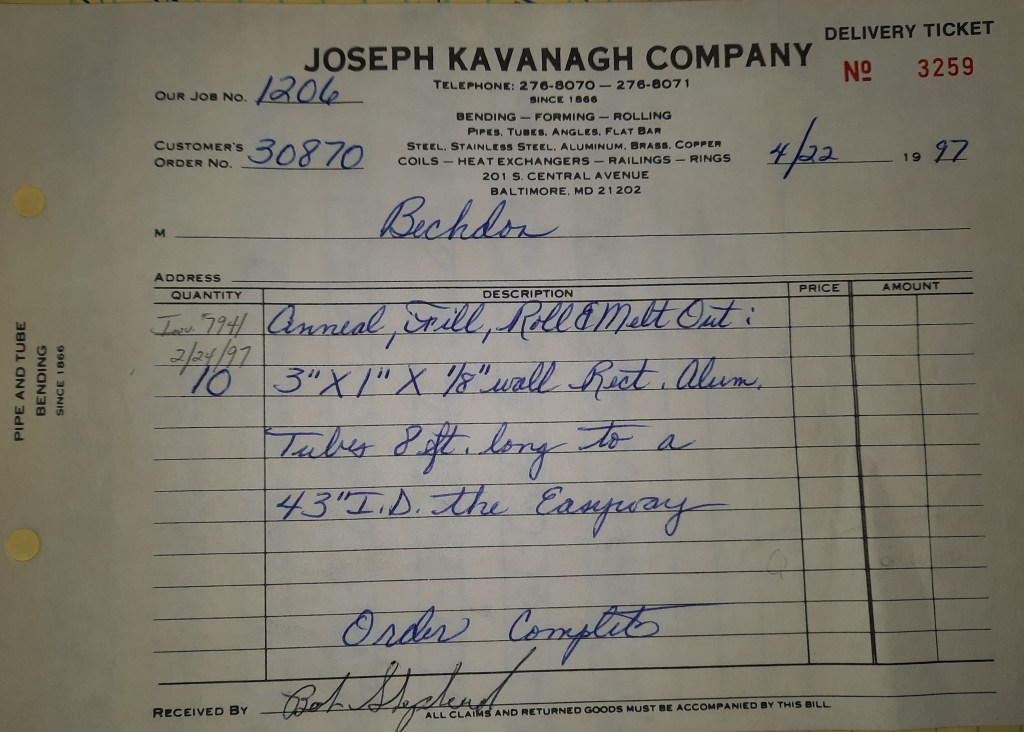 DELIVERY TICKET
JOSEPH KAVANAGH COMPANY
Nº 3259
TELEPHONE: 276-8070 — 276-8071
SINCE 1866
OUR JOB NO. 1206
BENDING — FORMING — ROLLING
PIPES, TUBES, ANGLES, FLAT BAR
STEEL, STAINLESS STEEL, ALUMINUM, BRASS, COPPER
COILS — HEAT EXCHANGERS — RAILINGS — RINGS
201 S. CENTRAL AVENUE
BALTIMORE, MD 21202
CUSTOMER'S
ORDER NO. 30870
4/22 19 97
M Bechdon
ADDRESS
QUANTITY DESCRIPTION PRICE AMOUNT
Inv. 7941 Anneal, Fill, Roll & Melt Out:
2/24/97
10 3" X 1" X 1/8" wall Rect. Alum.
Tubes 8 ft. long to a
43" I.D. the Easyway
Order Complete
RECEIVED BY Bob
ALL CLAIMS AND RETURNED GOODS MUST BE ACCOMPANIED BY THIS BILL
PIPE AND TUBE
BENDING
SINCE 1866